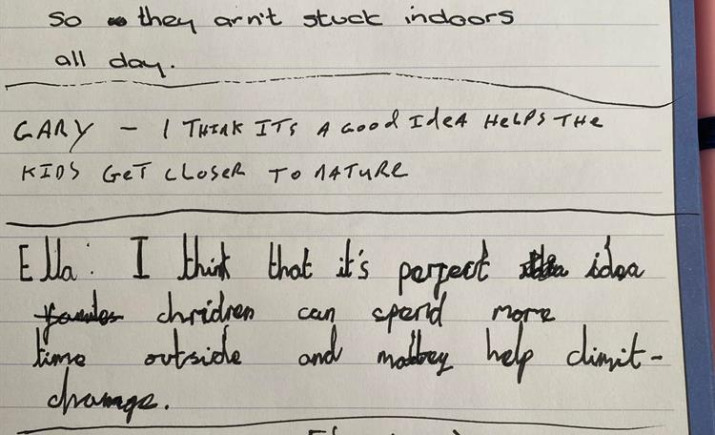 so they arn't stuck indoors
all day.
GARY - I THINK ITS A GOOD IDEA HELPS THE
KIDS GET CLOSER TO NATURE
Ella: I think that it's perfect idea
chridren can spend more
time outside and help climit-
change.